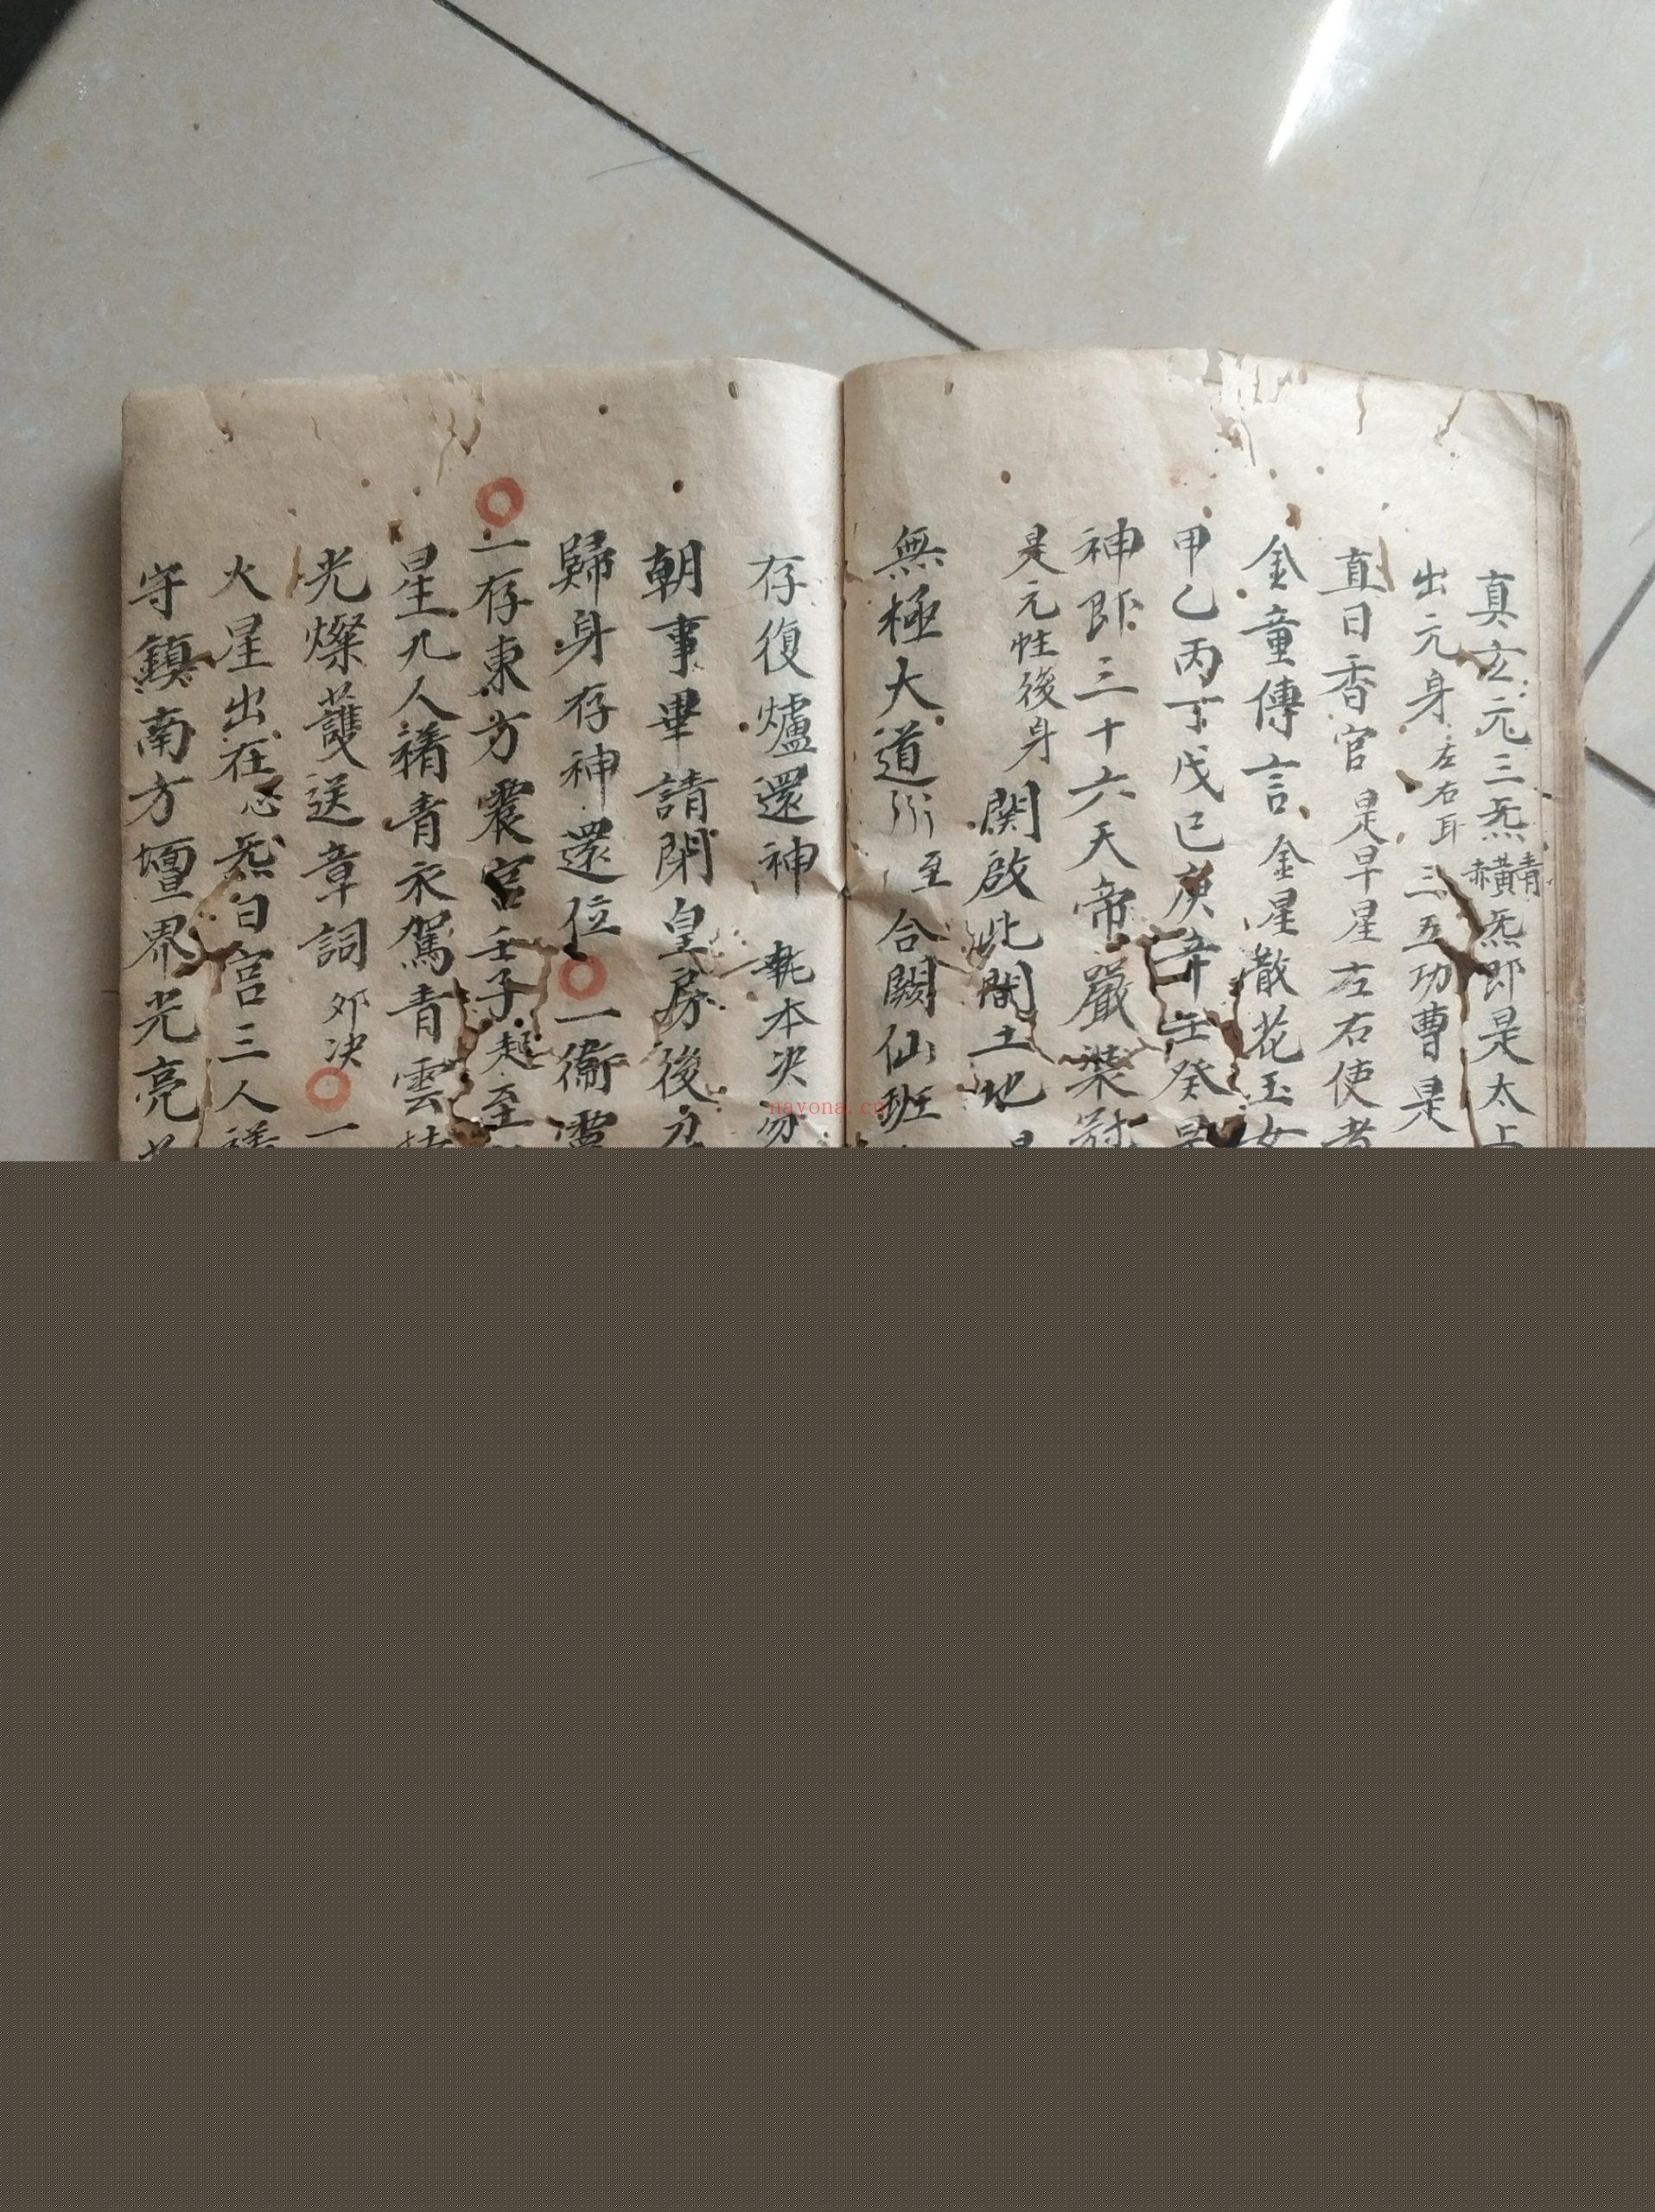 真玄元三炁青橫赤炁即是太上
出元身左右耳三五功曹是
直日香官是早星左右使者
金童傳言金星散花玉女
甲乙丙丁戊己庚辛壬癸是
神即三十六天帝嚴裝冠
是元性後身關啟此間土地
無極大道所至合闕仙班
存復爐還神執本決勿
朝事畢請閉皇房後
歸身存神還位一衛靈
一存東方震宮壬子起至
星九人著青衣駕青雲
光燦護送章詞夘决一
火星出在心炁曰宮三人
守鎮南方壇界光亮
nayona.cn